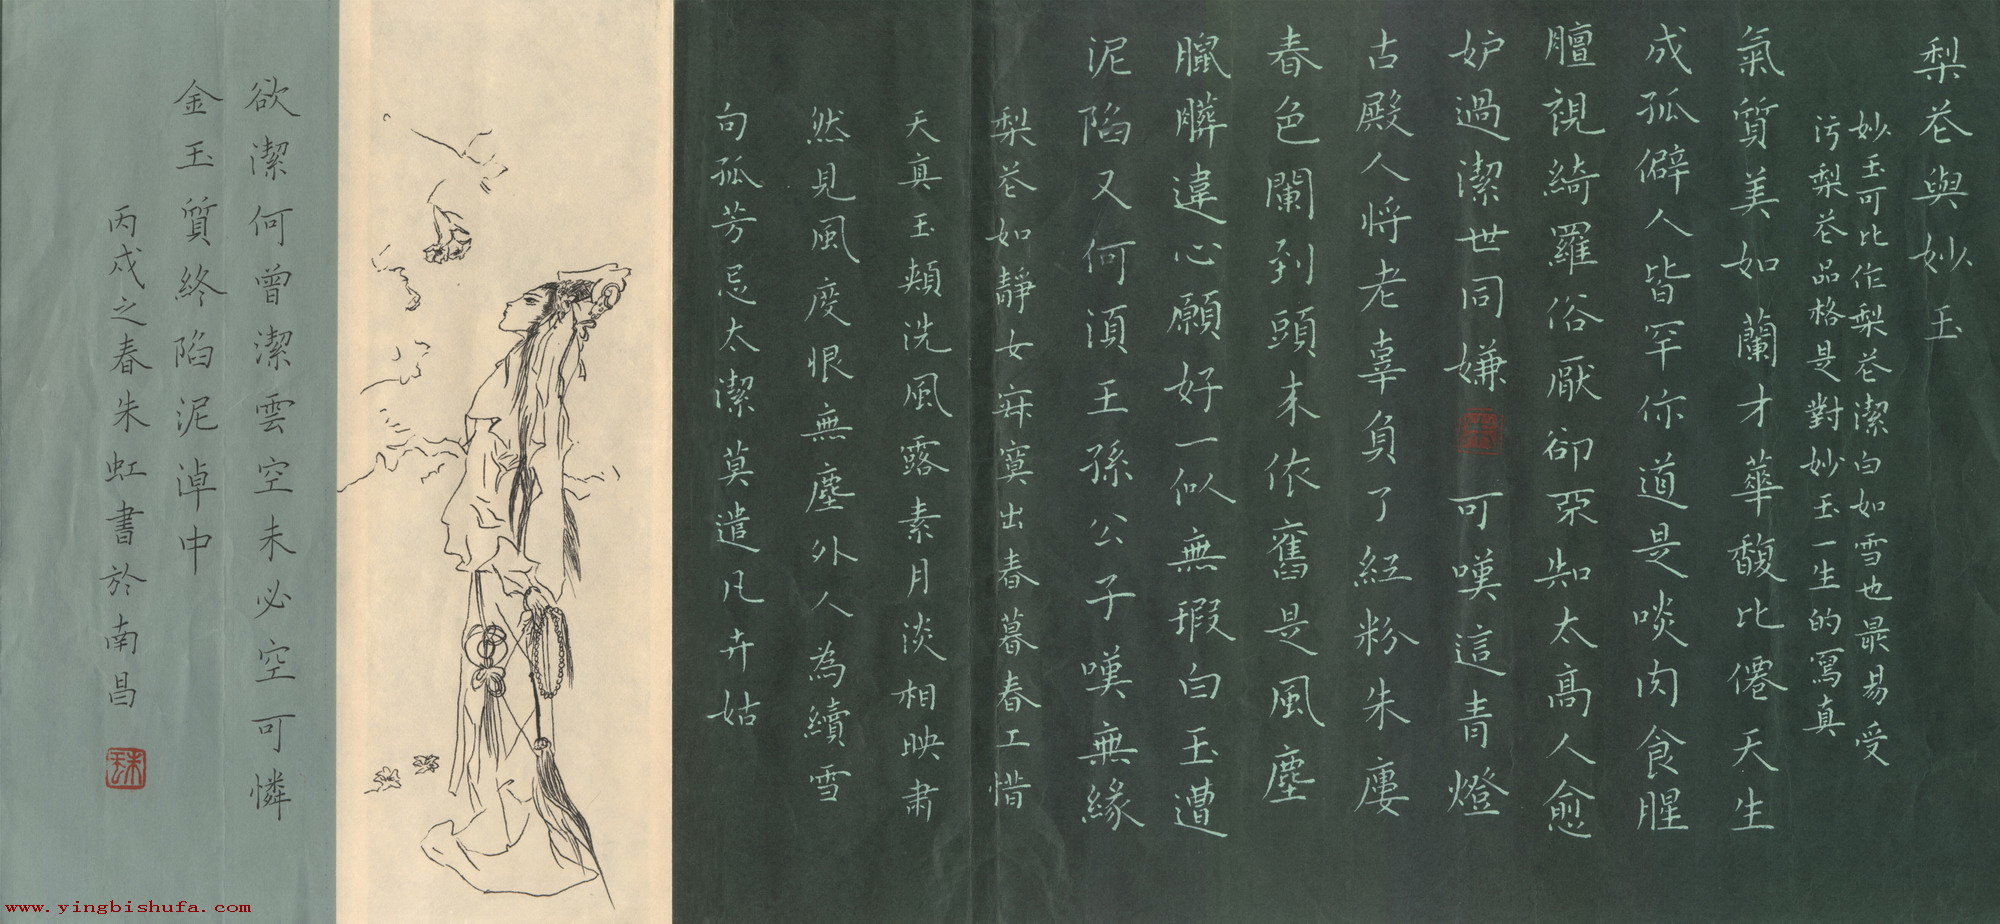 梨花與妙玉
妙玉可比作梨花潔白如雪也最易受
污梨花品格是對妙玉一生的寫真
氣質美如蘭才華馥比僊天生
成孤僻人皆罕你道是啖肉食腥
膻視綺羅俗厭卻不知太高人愈
妒過潔世同嫌 可嘆這青燈
古殿人將老辜負了紅粉朱樓
春色闌到頭來依舊是風塵
臘臟違心願好一似無瑕白玉遭
泥陷又何須王孫公子嘆無緣
梨花如靜女寂寞出春暮春工惜
天真玉頰洗風露素月淡相映肅
然見風度恨無塵外人為續雪
句孤芳忌太潔莫遣凡卉姑
欲潔何曾潔雲空未必空可憐
金玉質終陷泥淖中
丙戌之春朱虹書於南昌
www.yingbishufa.com